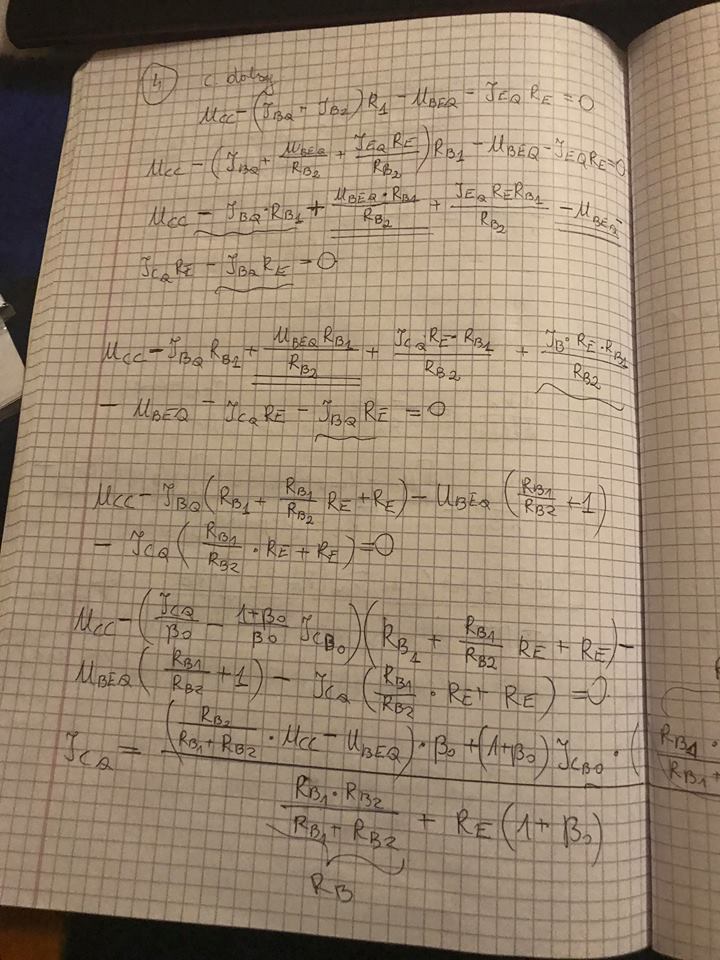 4 c. dalszy
U_CC - (I_BQ - I_B2) R_1 - U_BEQ - I_EQ R_E = 0
U_CC - (I_BQ + U_BEQ/R_B2 + I_EQ R_E/R_B2) R_B1 - U_BEQ - I_EQ R_E = 0
U_CC - I_BQ · R_B1 + U_BEQ · R_B1/R_B2 + I_EQ R_E R_B1/R_B2 - U_BEQ -
I_CQ R_E - I_BQ R_E = 0
U_CC - I_BQ R_B1 + U_BEQ R_B1/R_B2 + I_CQ · R_E · R_B1/R_B2 + I_B · R_E · R_B1/R_B2
- U_BEQ - I_CQ R_E - I_BQ R_E = 0
U_CC - I_BQ (R_B1 + R_B1/R_B2 R_E + R_E) - U_BEQ (R_B1/R_B2 + 1)
- I_CQ (R_B1/R_B2 · R_E + R_E) = 0
U_CC - (I_CQ/β_0 - 1+β_0/β_0 I_CB0) (R_B1 + R_B1/R_B2 R_E + R_E) -
U_BEQ (R_B1/R_B2 + 1) - I_CQ (R_B1/R_B2 · R_E + R_E) = 0
I_CQ = (R_B2/R_B1 + R_B2 · U_CC - U_BEQ) · β_0 + (1+β_0) I_CB0 · (R_B1 · / R_B1 +
R_B1 · R_B2/R_B1 + R_B2 + R_E (1 + β_0)
R_B